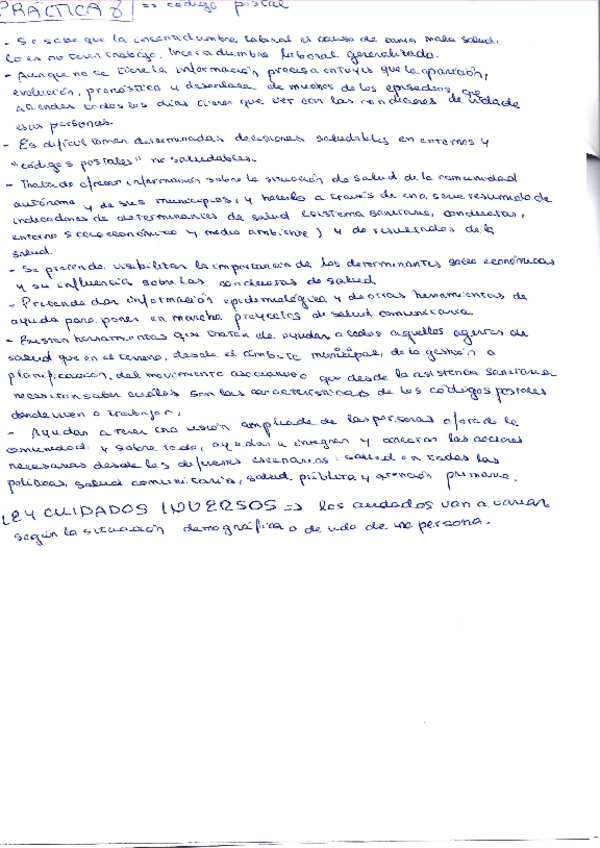 PRÁCTICA 8 => código postal
- Se sabe que la incertidumbre laboral es causa de una mala salud.
Lo es no tener trabajo. Incertidumbre laboral generalizada.
- Aunque no se tiene la información precisa intuyes que la aparición,
evolución, pronóstico y desenlace de muchos de los episodios que
atiendes todos los días tienen que ver con las condiciones de vida de
esas personas.
- Es difícil tomar determinadas decisiones saludables en entornos y
"códigos postales" no saludables.
- Trata de ofrecer información sobre la situación de salud de la comunidad
autónoma y de sus municipios, y hacerlo a través de una serie resumida de
indicadores de determinantes de salud (sistema sanitario, conductas,
entorno socioeconómico y medio ambiente) y de resultados de la
salud.
- Se pretende visibilizar la importancia de los determinantes socioeconómicos
y su influencia sobre las conductas de salud.
- Pretende dar información epidemiológica y de otras herramientas de
ayuda para poner en marcha proyectos de salud comunitaria.
- herramientas que tratan de ayudar a todos aquellos agentes de
salud que en el terreno, desde el ámbito municipal, de la gestión o
planificación, del movimiento asociativo o que desde la asistencia sanitaria
necesitan saber cuáles son las características de los códigos postales
donde viven o trabajan.
- Ayudan a tener una visión ampliada de las personas de la
comunidad y sobre todo, ayudar a integrar y conectar las acciones
necesarias desde los diferentes escenarios: salud en todas las
políticas, salud comunitaria, salud pública y atención primaria.
LEY CUIDADOS INVERSOS => los cuidados van a variar
según la situación demográfica o de vida de una persona.